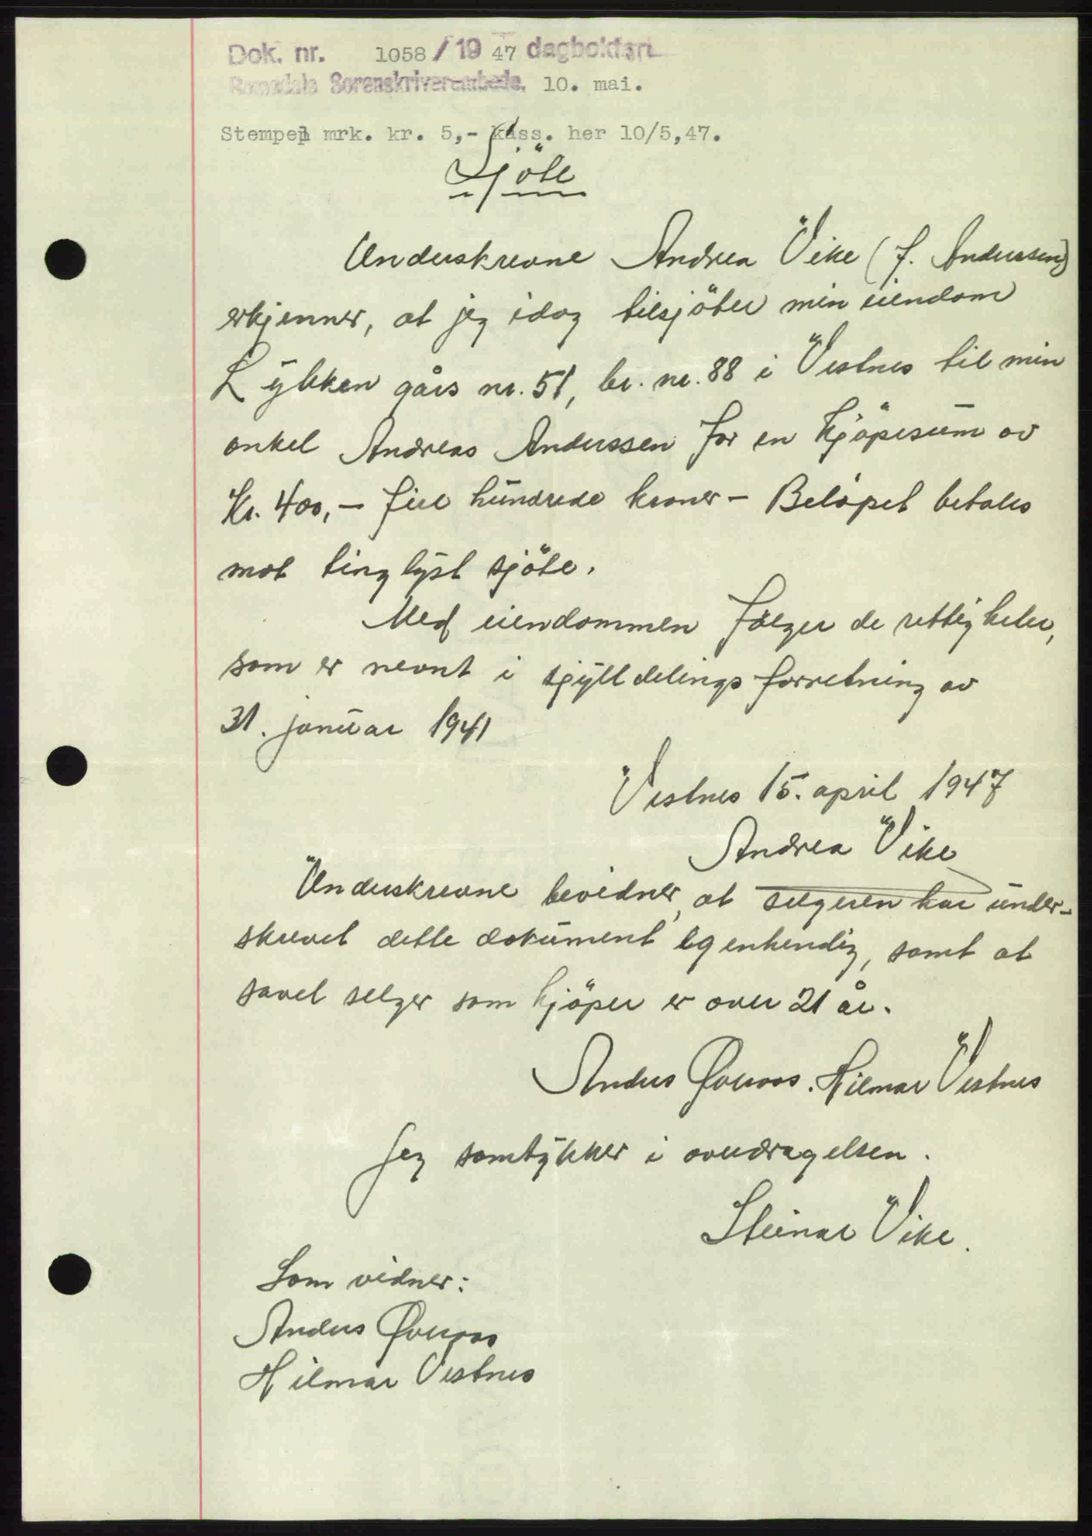 Dok. nr. 1058 / 19 47 dagbokført
Romsdals Sorenskriverembede, 10. mai.
Stempel mrk. kr. 5,- kass. her 10/5,47.
Sjöte
Underskrevne Andrea Vike (f. Anderssen)
erkjenner, at jeg idag tilsjöter min eiendom
Lykken gårs nr. 51, br. nr. 88 i Vestnes til min
onkel Andreas Anderssen for en kjöpesum av
Kr. 400,- fire hundrede kroner - Belöpet betales
mot tinglyst sjöte.
Med eiendommen fölger de rettigheter,
som er nevnt i sjylldelingsforretning av
31. januar 1941
Vestnes 15. april 1947
Andrea Vike
Underskrevne bevidner, at selgeren har under-
skrevet dette dokument egenhendig, samt at
savel selger som kjöper er over 21 år.
Anders Øveraas. Hilmar Vestnes
Jeg samtykker i overdragelsen.
Steinar Vike.
Som vidner:
Anders Øveraas
Hilmar Vestnes